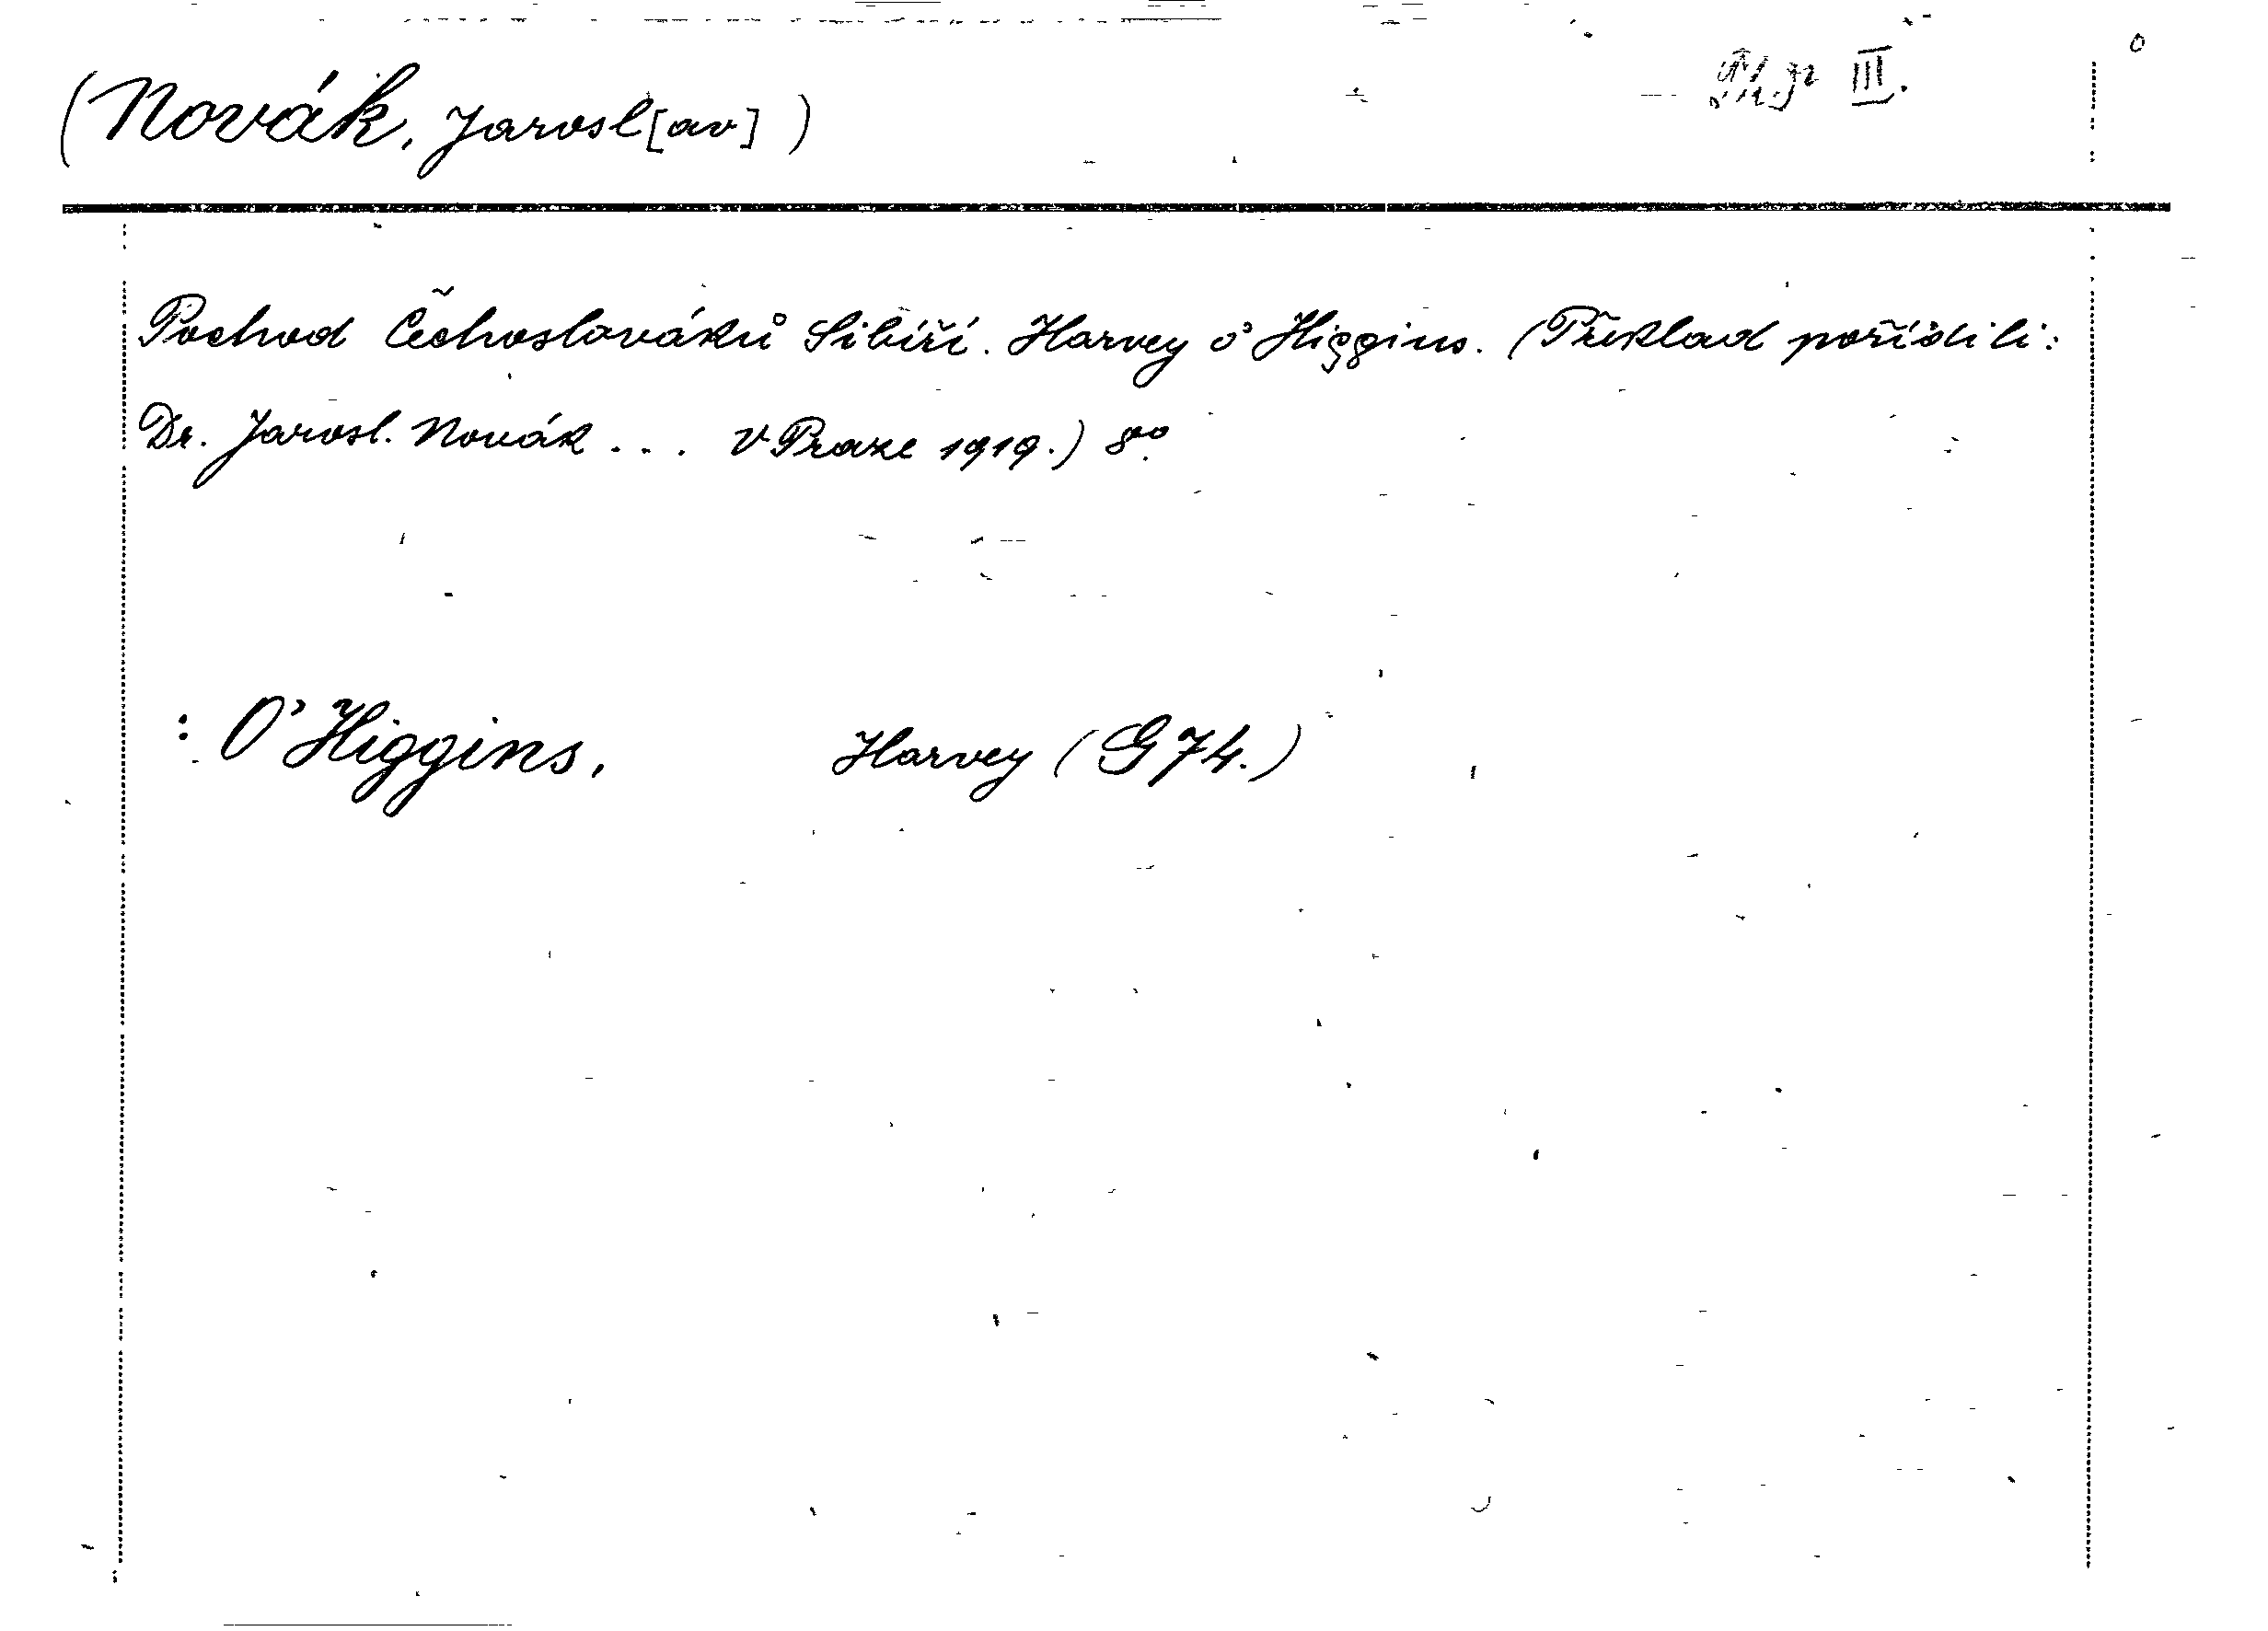 (Novák, Jarosl[av]) III.
Pochod Čechoslováků Sibíří. Harvey o' Higgins. (Překlad pořídili:
Dr. Jarosl. Novák ... V Praze 1919.) 8°.
: O'Higgins, Harvey (G 74.)